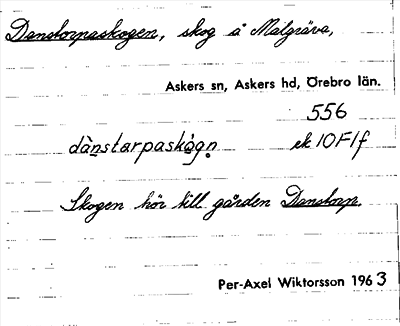 Danstorpaskogen, skog å Målgräva,
Askers sn, Askers hd, Örebro län.
556
dànstarpaskògn ek 10F1f
Skogen hör till gården Danstorp.
Per-Axel Wiktorsson 1963